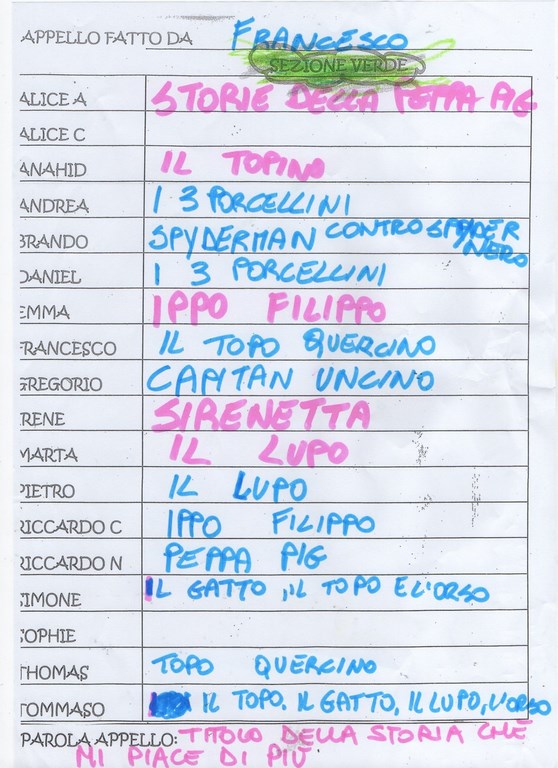 APPELLO FATTO DA FRANCESCO
SEZIONE VERDE
ALICE A STORIE DELLA PEPPA PIG
ALICE C
ANAHID IL TOPINO
ANDREA I 3 PORCELLINI
BRANDO SPYDERMAN CONTRO SPYDER NERO
DANIEL I 3 PORCELLINI
EMMA IPPO FILIPPO
FRANCESCO IL TOPO QUERCINO
GREGORIO CAPITAN UNCINO
IRENE SIRENETTA
MARTA IL LUPO
PIETRO IL LUPO
RICCARDO C IPPO FILIPPO
RICCARDO N PEPPA PIG
SIMONE IL GATTO, IL TOPO E L'ORSO
SOPHIE
THOMAS TOPO QUERCINO
TOMMASO IL TOPO. IL GATTO, IL LUPO, L'ORSO
PAROLA APPELLO: TITOLO DELLA STORIA CHE
MI PIACE DI PIÙ